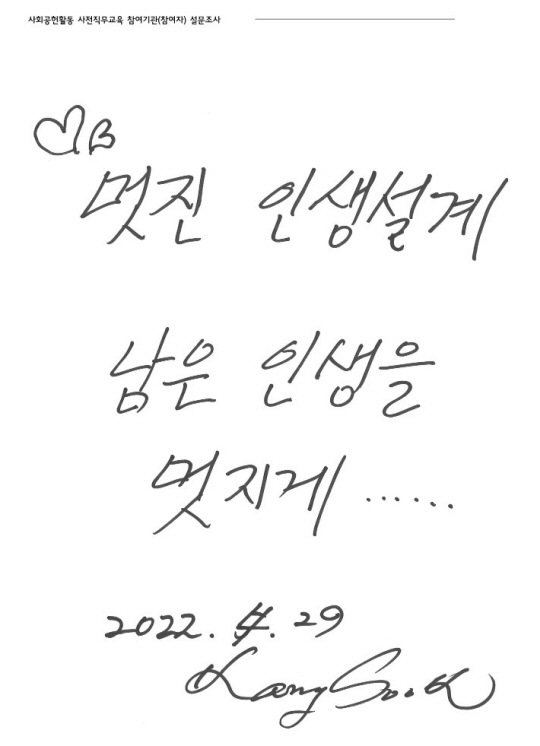 사회공헌활동 사전직무교육 참여기관(참여자) 설문조사
멋진 인생설계
남은 인생을
멋지게 ......
2022. 4. 29